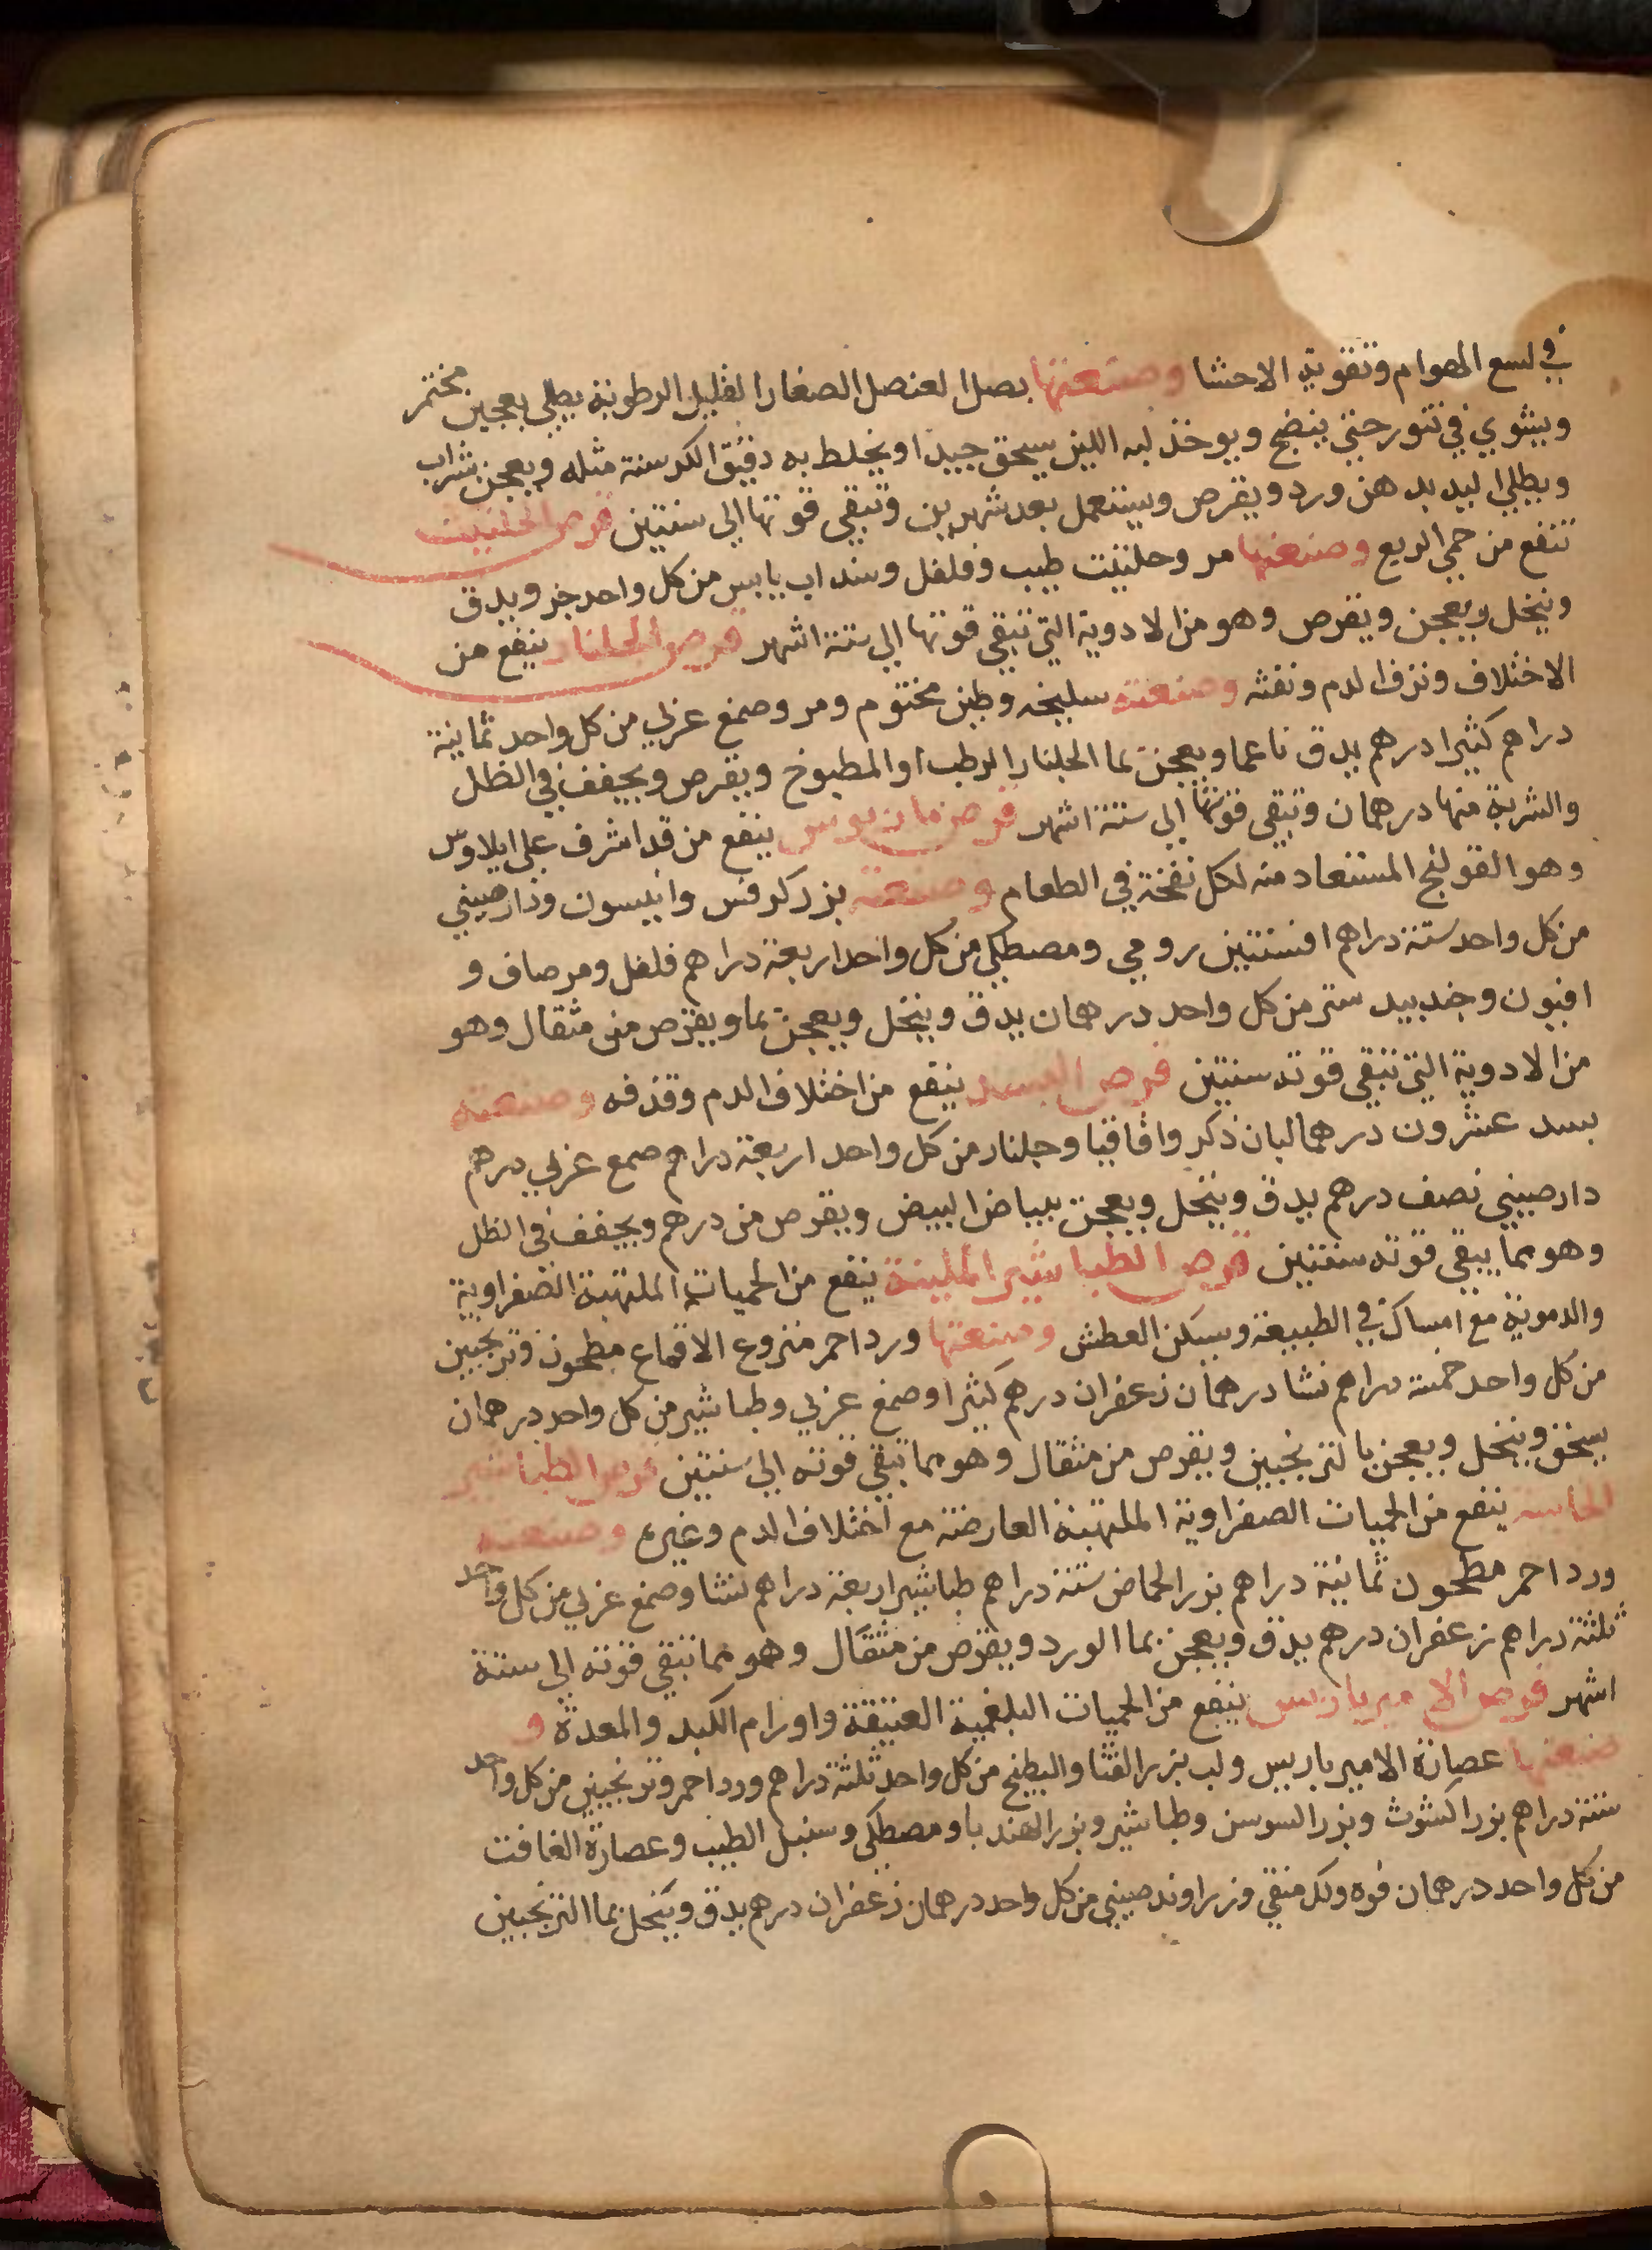 في لسع الهوام وتقوية الاحشا وصنعتها بصل العنصل الصغار القليل الرطوبة يطلي بعجين مختمر
ويشوي في تنور حتى ينضج ويوخذ لبه اللين يسحق جيدا ويخلط به دقيق الكرسنة مثله ويعجن شراب
ويطلي اليد بدهن ورد ويقرص ويستعمل بعد شهرين وتبقي قوتها الي سنتين قرص الحلتيت
تنفع من حمي الربع وصنعتها مر وحلتيت طيب وفلفل وسنداب يابس من كل واحد جز ويدق
وينخل ويعجن ويقرص وهو من الادوية التي تبقي قوتها الي ستة اشهر قرص الجلنار ينفع من
الاختلاف ونزف الدم ونفثه وصنعته سليخه وطين مختوم ومر وصمغ عربي من كل واحد ثمانية
دراهم كثيرا درهم يدق ناعما ويعجن بما الجلنار الرطب او المطبوخ ويقرص ويجفف في الظل
والشربة منها درهمان وتبقي قوتها الي ستة اشهر قرص ينفع من قد اشرف علي ايلاوس
وهو القولنج المستعاد منه لكل نفخة في الطعام وصنعته بزر كرفس وانيسون ودارصيني
من كل واحد ستة دراهم افسنتين رومي ومصطكي من كل واحد اربعة دراهم فلفل ومر صاف و
افيون وجندبيدستر من كل واحد درهمان يدق وينخل ويعجن بما ويقرص من مثقال وهو
من الادوية التي تبقي قوته سنتين قرص البسد ينفع من اختلاف الدم وقذفه وصنعته
بسد عشرون درهما لبان ذكر واقاقيا وجلنار من كل واحد اربعة دراهم وصمغ عربي درهم
دارصيني نصف درهم يدق وينخل ويعجن ببياض البيض ويقرص من درهم ويجفف في الظل
وهو مما يبقي قوته سنتين قرص الطباشير الملينة ينفع من الحميات الملتهبة الصفراوية
والدموية مع امساك في الطبيعة ويسكن العطش وصنعتها ورد احمر منزوع الاقماع مطحون وترنجبين
من كل واحد خمسة دراهم نشا درهمان زعفران درهم كثيرا وصمغ عربي وطباشير من كل واحد درهمان
يسحق وينخل ويعجن بالترنجبين ويقرص من مثقال وهو مما تبقي قوته الي سنتين قرص الطباشير
الحابسة ينفع من الحميات الصفراوية الملتهبة العارضة مع اختلاف الدم وغيره وصنعته
ورد احمر مطحون ثمانية دراهم بزر الحماض ستة دراهم طباشير اربعة دراهم نشا وصمغ عربي من كل واحد
ثلثة دراهم زعفران درهم يدق ويعجن بما الورد ويقرص من مثقال وهو مما تبقي قوته الي ستة
اشهر قرص الاميرباريس ينفع من الحميات البلغمية العتيقة واورام الكبد والمعدة و
صنعتها عصارة الاميرباريس ولب بزر القثا والبطيخ من كل واحد ثلثة دراهم ورد احمر وترنجبين من كل واحد
ستة دراهم بزر الكشوث وبزر السوسن وطباشير وبزر الهندبا ومصطكي وسنبل الطيب وعصارة الغافت
من كل واحد درهمان فوه ولك منقي وزراوند صيني من كل واحد درهمان زعفران درهم يدق وينخل بما الترنجبين